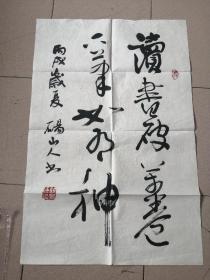 讀書破萬卷
下筆如有神
丙戌歲夏 碭山人書